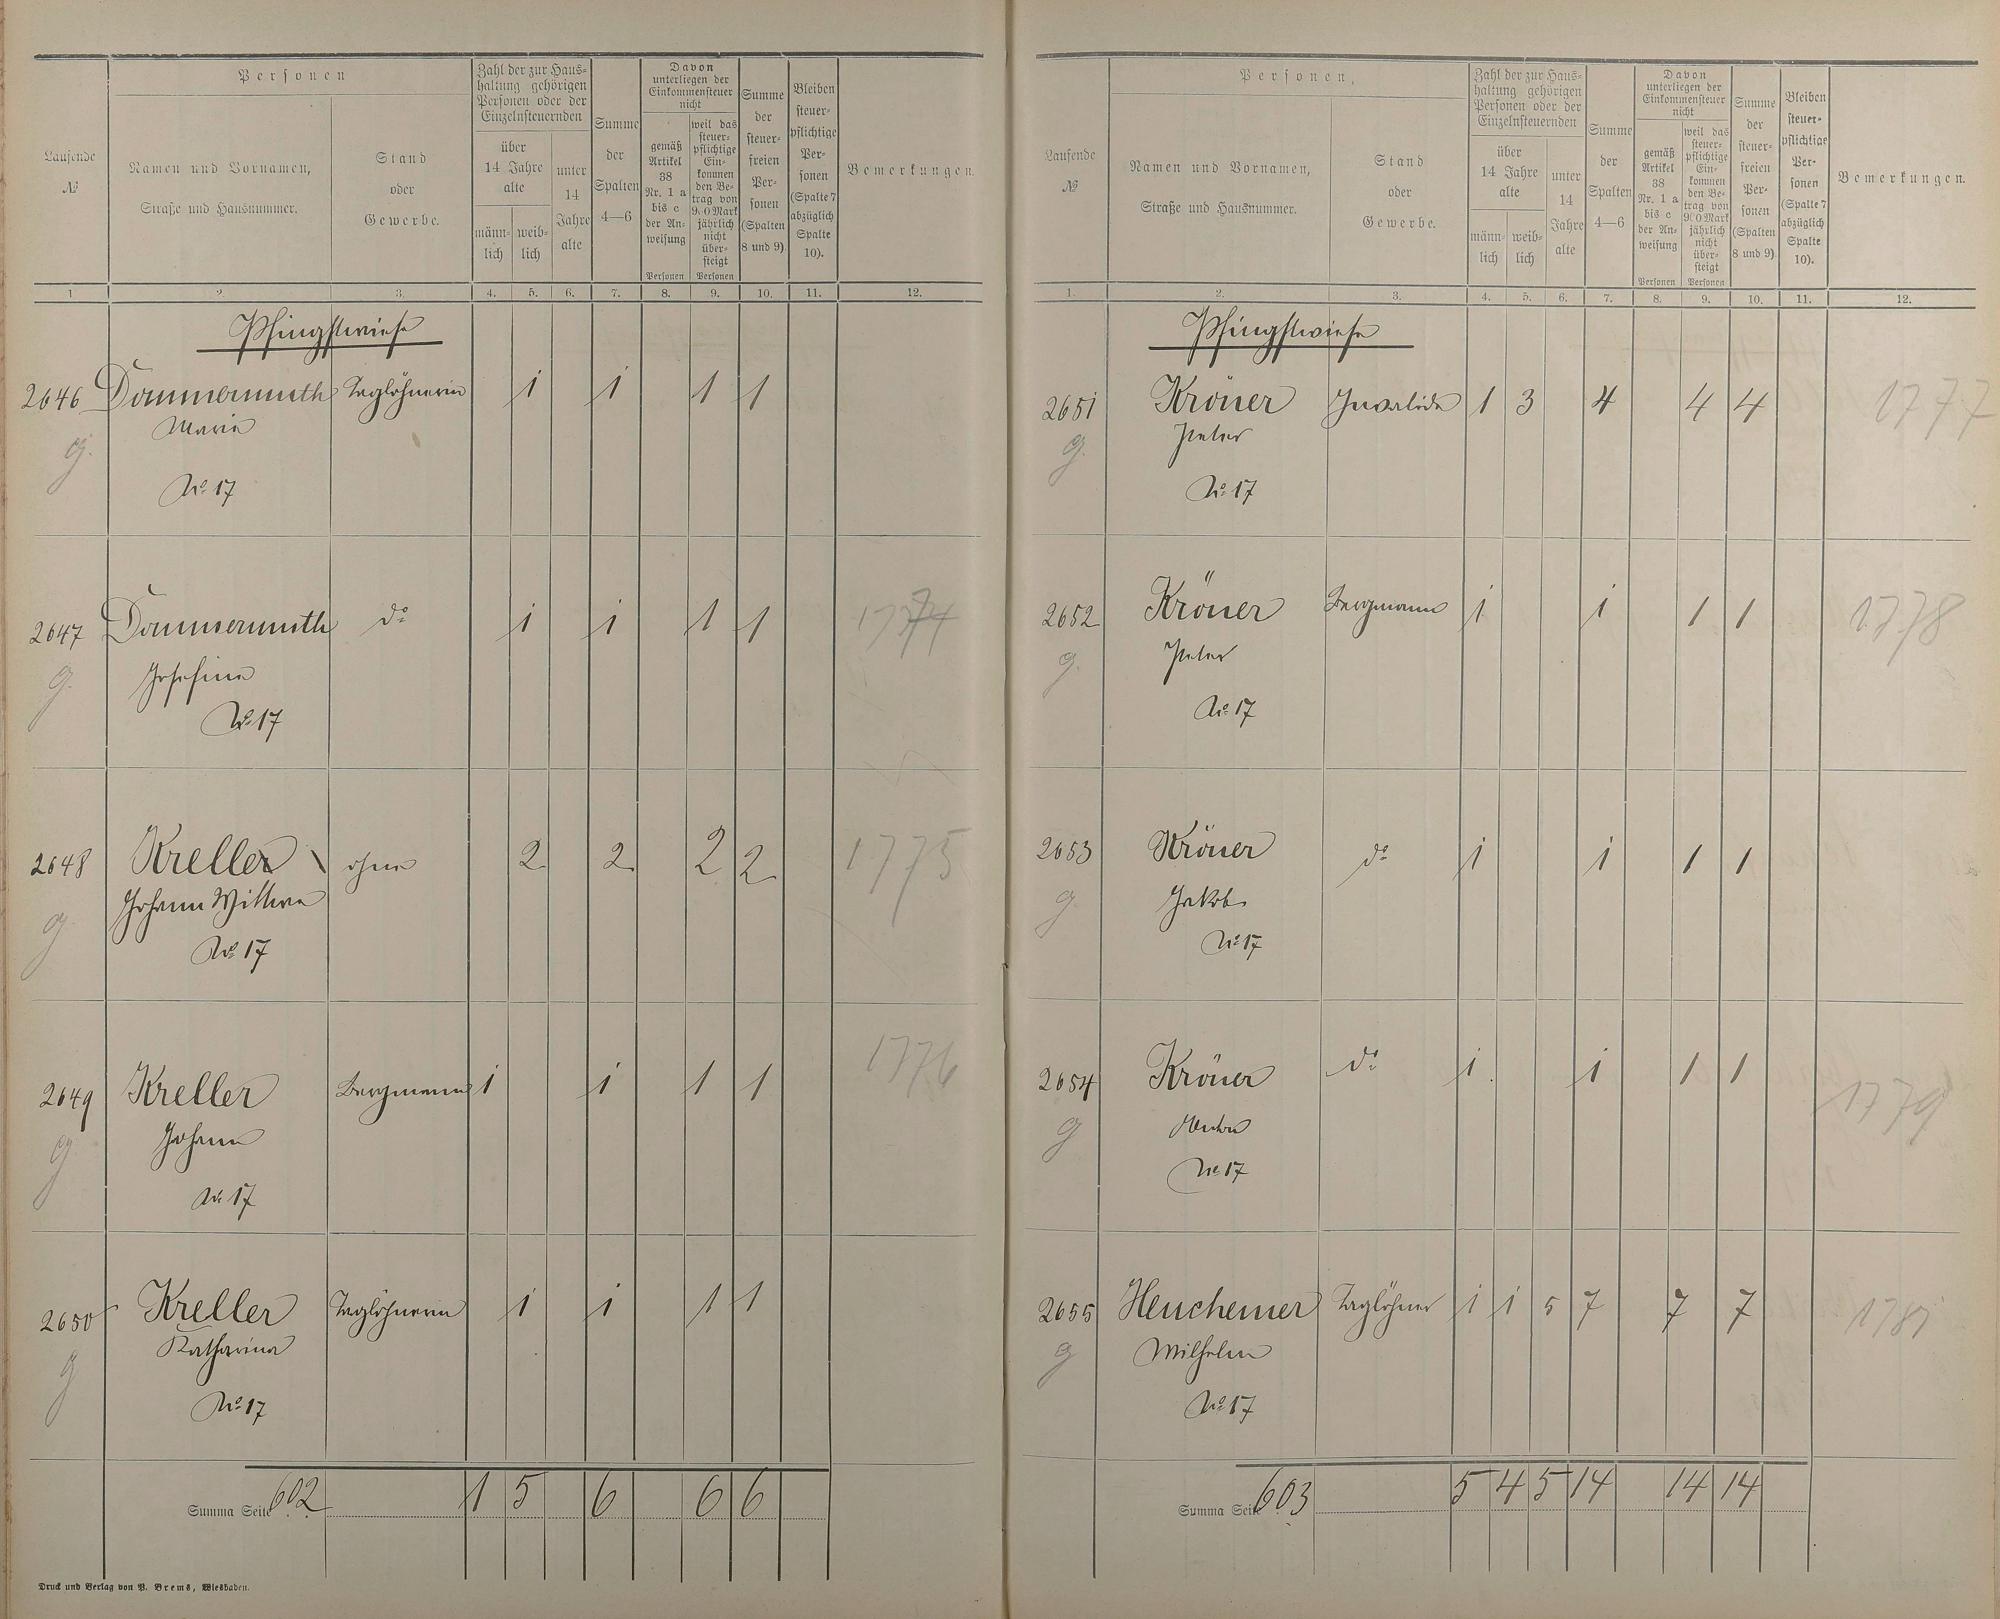 Laufende
№
Personen
Namen und Vornamen,
Straße und Hausnummer.
Stand
oder
Gewerbe.
Zahl der zur Haus-
haltung gehörigen
Personen oder der
Einzelnsteuernden
über
14 Jahre
alte
männ-
lich
weib-
lich
unter
14
Jahre
alte
Summe
der
Spalten
4—6
Davon
unterliegen der
Einkommensteuer
nicht
gemäß
Artikel
38
Nr. 1 a
bis c
der An-
weisung
Personen
weil das
steuer-
pflichtige
Ein-
kommen
den Be-
trag von
900 Mark
jährlich
nicht
über-
steigt
Personen
Summe
der
steuer-
freien
Per-
sonen
(Spalten
8 und 9)
Bleiben
steuer-
pflichtige
Per-
sonen
(Spalte 7
abzüglich
Spalte
10).
Bemerkungen.
1 2. 3. 4. 5. 6. 7. 8. 9. 10. 11. 12.
Pfingstwiese
2646 Dommermuth Taglöhnerin 1 1 1 1
g. Marie
No 17
2647 Dommermuth do 1 1 1 1 1774
g. Josefine
No 17
2648 Kreller ohne 2 2 2 2 1775
g Johann Wittwe
No 17
2649 Kreller Bergmann 1 1 1 1 1776
g Johann
No 17
2650 Kreller Taglöhnerin 1 1 1 1
g Katharina
No 17
Summa Seite 602 1 5 6 6 6
Druck und Verlag von P. Brems, Wiesbaden.
Laufende
№
Personen.
Namen und Vornamen,
Straße und Hausnummer.
Stand
oder
Gewerbe.
Zahl der zur Haus-
haltung gehörigen
Personen oder der
Einzelnsteuernden
über
14 Jahre
alte
männ-
lich
weib-
lich
unter
14
Jahre
alte
Summe
der
Spalten
4—6
Davon
unterliegen der
Einkommensteuer
nicht
gemäß
Artikel
38
Nr. 1 a
bis c
der An-
weisung
Personen
weil das
steuer-
pflichtige
Ein-
kommen
den Be-
trag von
900 Mark
jährlich
nicht
über-
steigt
Personen
Summe
der
steuer-
freien
Per-
sonen
(Spalten
8 und 9)
Bleiben
steuer-
pflichtige
Per-
sonen
(Spalte 7
abzüglich
Spalte
10).
Bemerkungen.
1. 2. 3. 4. 5. 6. 7. 8. 9. 10. 11. 12.
Pfingstwiese
2651 Kröner Invalide 1 3 4 4 4 1777
g. Peter
No 17
2652 Kröner Bergmann 1 1 1 1 1778
g. Peter
No 17
2653 Kröner do 1 1 1 1
g Jakob
No 17
2654 Kröner do 1 1 1 1 1779
g Anton
No 17
2655 Heuchemer Taglöhner 1 1 5 7 7 7
g Wilhelm
No 17
Summa Seite 603 5 4 5 14 14 14